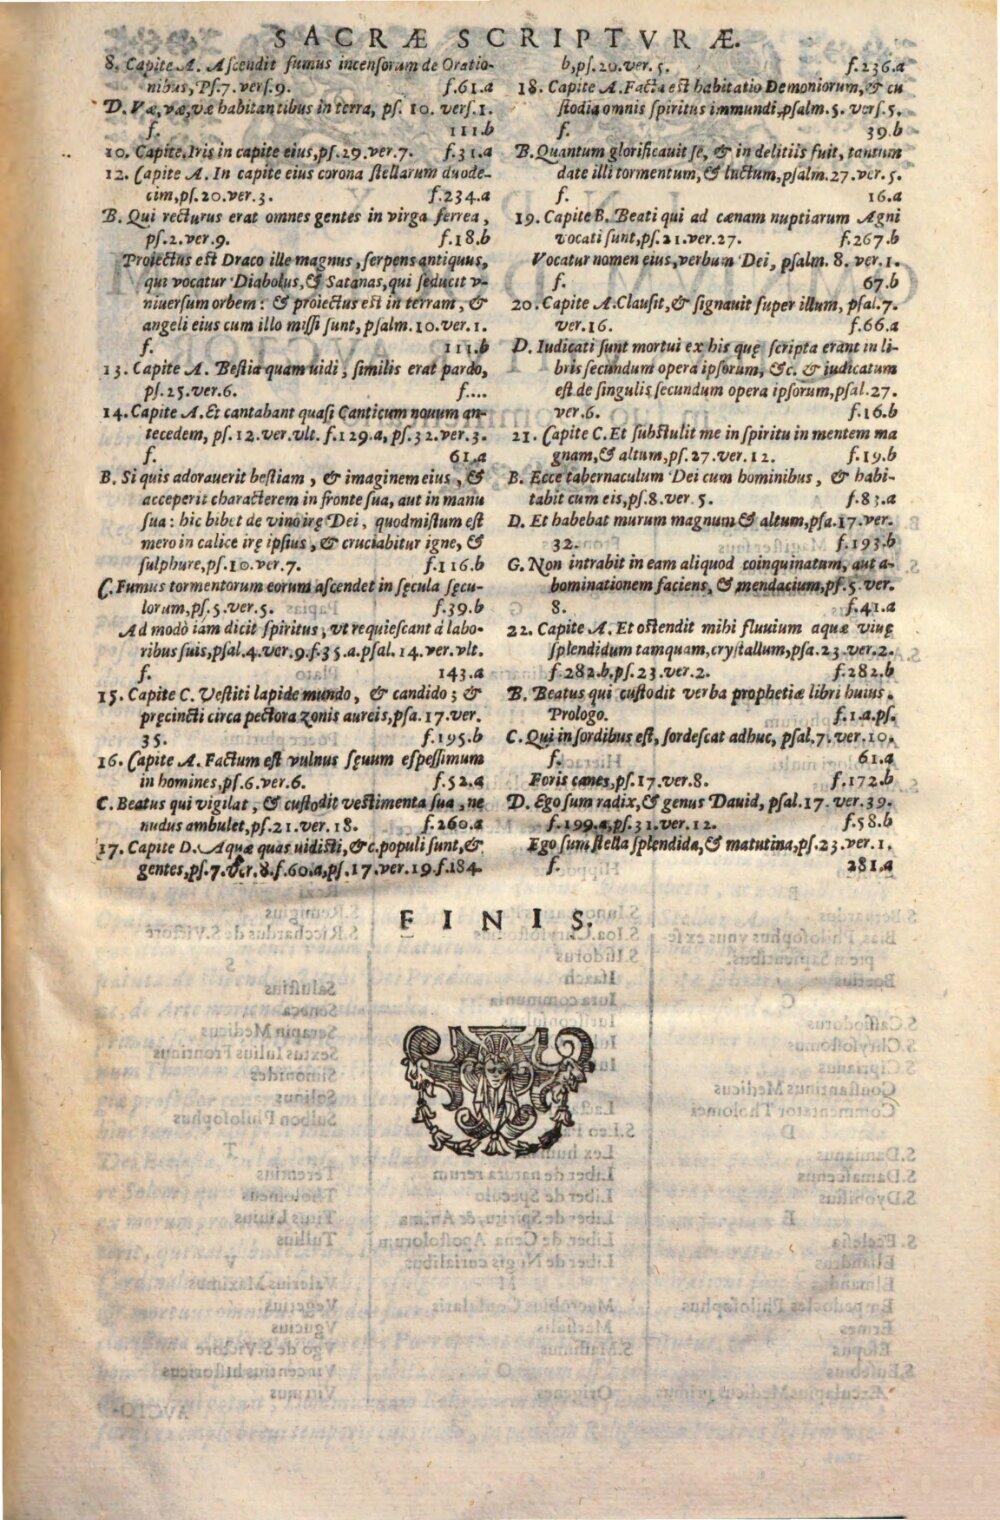 SACRÆ SCRIPTVRÆ.
8. Capite A. Ascendit fumus incensorum de Oratio-
nibus, Ps.7. vers.9. f.61.a
D. Væ, væ, væ habitantibus in terra, ps. 10. vers.1.
f. 111.b
10. Capite. Iris in capite eius, ps.29.ver.7. f.31.a
12. Capite A. In capite eius corona stellarum duode-
cim, ps.20.ver.3. f.234.a
B. Qui recturus erat omnes gentes in virga ferrea,
ps.2.ver.9. f.18.b
Proiectus est Draco ille magnus, serpens antiquus,
qui vocatur Diabolus, & Satanas, qui seducit v-
niuersum orbem: & proiectus est in terram, &
angeli eius cum illo missi sunt, psalm.10.ver.1.
f. 111.b
13. Capite A. Bestia quam uidi, similis erat pardo,
ps.25.ver.6. f....
14. Capite A. Et cantabant quasi Canticum nouum an-
tecedem, ps.12.ver.vlt. f.129.a, ps.32.ver.3.
f. 61.a
B. Si quis adorauerit bestiam, & imaginem eius, &
acceperit characterem in fronte sua, aut in manu
sua: hic bibet de vino irę Dei, quod mistum est
mero in calice irę ipsius, & cruciabitur igne, &
sulphure, ps.10.ver.7. f.116.b
C. Fumus tormentorum eorum ascendet in sęcula sęcu-
lorum, ps.5.ver.5. f.39.b
A d modò iam dicit spiritus, vt requiescant à labo-
ribus suis, psal.4.ver.9.f.35.a.psal.14.ver.vlt.
f. 143.a
15. Capite C. Vestiti lapide mundo, & candido; &
pręcincti circa pectora zonis aureis, psa.17.ver.
35. f.195.b
16. Capite A. Factum est vulnus sęuum espessimum
in homines, ps.6.ver.6. f.52.a
C. Beatus qui vigilat, & custodit vestimenta sua, ne
nudus ambulet, ps.21.ver.18. f.260.a
17. Capite D. Aquæ quas uidisti, &c. populi sunt, &
gentes, ps.7.ver.8.f.60.a, ps.17.ver.19.f.184.
b, ps.20.ver.5. f.236.a
18. Capite A. Facta est habitatio Demoniorum, & cu
stodia omnis spiritus immundi, psalm.5. vers.5.
f. 39.b
B. Quantum glorificauit se, & in delitiis fuit, tantum
date illi tormentum, & luctum, psalm.27.ver.5.
f. 16.a
19. Capite B. Beati qui ad cænam nuptiarum Agni
vocati sunt, ps.21.ver.27. f.267.b
Vocatur nomen eius, verbum Dei, psalm. 8. ver.1.
f. 67.b
20. Capite A. Clausit, & signauit super illum, psal.7.
ver.16. f.66.a
D. Iudicati sunt mortui ex his quę scripta erant in li-
bris secundum opera ipsorum, &c. & iudicatum
est de singulis secundum opera ipsorum, psal.27.
ver.6. f.16.b
21. Capite C. Et substulit me in spiritu in mentem ma
gnam, & altum, ps.27.ver.12. f.19.b
B. Ecce tabernaculum Dei cum hominibus, & habi-
tabit cum eis, ps.8.ver.5. f.83.a
D. Et habebat murum magnum & altum, psa.17.ver.
32. f.193.b
G. Non intrabit in eam aliquod coinquinatum, aut a-
bominationem faciens, & mendacium, ps.5.ver.
8. f.41.a
22. Capite A. Et ostendit mihi fluuium aquæ viuę
splendidum tamquam, crystallum, psa.23.ver.2.
f.282.b.ps.23.ver.2. f.282.b
B. Beatus qui custodit verba prophetiæ libri huius.
Prologo. f.1.a.ps.
C. Qui in sordibus est, sordescat adhuc, psal.7.ver.10.
f. 61.a
Foris canes, ps.17.ver.8. f.172.b
D. Ego sum radix, & genus Dauid, psal.17.ver.39.
f.199.a, ps.31.ver.12. f.58.b
Ego sum stella splendida, & matutina, ps.23.ver.1.
f. 281.a
FINIS.